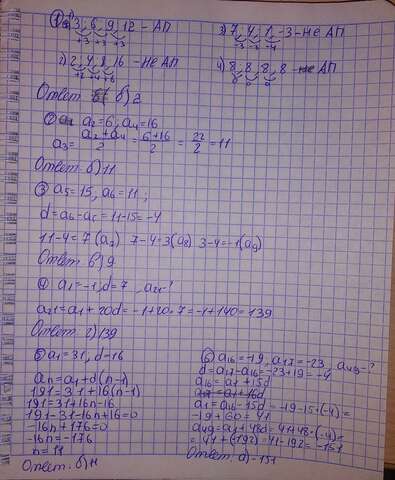 ① 1) 3, 6, 9, 12 - АП
+3 +3 +3
3) 7, 4, 1, -3 - Не АП
-3 -3 -4
2) 2, 4, 8, 16 - Не АП
+2 +4 +8
4) 8, 8, 8, 8 - не АП
0 0 0
Ответ б) 2
② a₂ = 6; a₄ = 16
a₃ = (a₂ + a₄)/2 = (6+16)/2 = 22/2 = 11
Ответ б) 11
③ a₅ = 15, a₆ = 11;
d = a₆ - a₅ = 11-15 = -4
11-4 = 7 (a₇) 7-4=3(a₈) 3-4=-1(a₉)
Ответ в) 9
④ a₁ = -1, d = 7, a₂₁ - ?
a₂₁ = a₁ + 20d = -1 + 20·7 = -1 + 140 = 139
Ответ г) 139
⑤ a₁ = 31, d - 16
aₙ = a₁ + d(n-1)
191 = 31 + 16(n-1)
191 = 31 + 16n - 16
191 - 31 - 16n + 16 = 0
-16n + 176 = 0
-16n = -176
n = 11
Ответ. б) 11
⑥ a₁₆ = -19, a₁₇ = -23, a₄₉ - ?
d = a₁₇ - a₁₆ = -23 + 19 = -4
a₁₆ = a₁ + 15d
a₁₇ = a₁ + 16d
a₁ = a₁₆ - 15d = -19 - 15·(-4) =
= -19 + 60 = 41
a₄₉ = a₁ + 48d = 41 + 48·(-4) =
= 41 + (-192) = 41 - 192 = -151
Ответ. а) -151